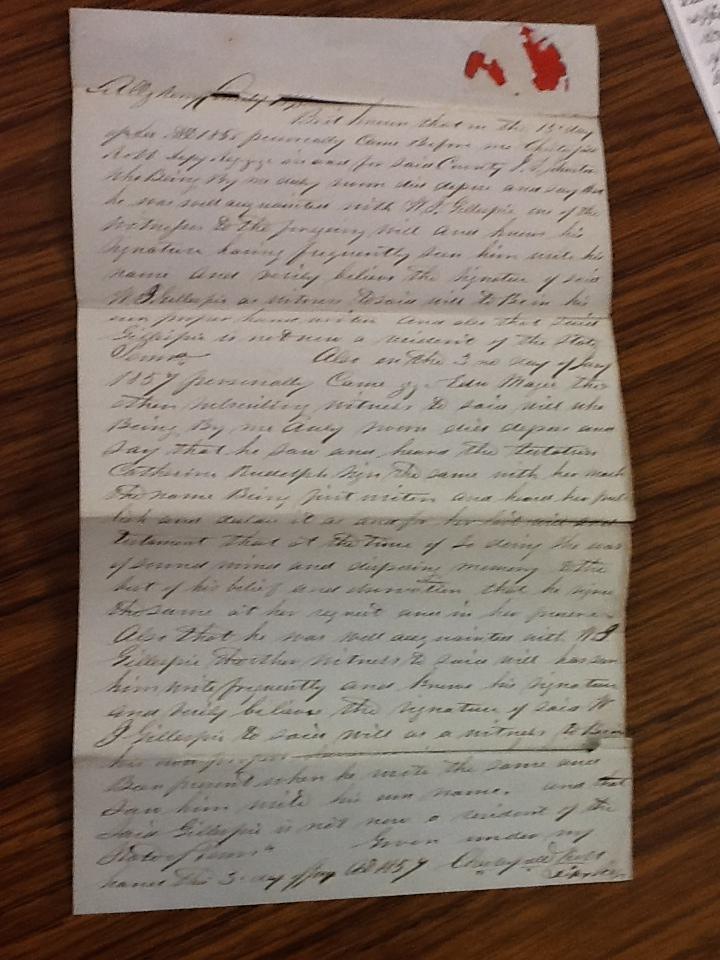 Allegheny County
Be it known that on the 15 day
personally came before me
in and for said County J. S. Johnston
who Being By me duly sworn did depose and say that
he was well acquainted with W. J. Gillespie one of the
witnesses to the foregoing will and knows his
signature having frequently seen him write his
name and verily believe the signature of said
W. J. Gillespie as witness to said will to Be in his
own proper hand and also that said
Gillespie is not now a resident of the State
Penna Also on the 3 day of Jany
1857 personally Came Edw the
other subscribing witness to said will who
Being By me duly sworn did depose and
say that he saw and heard the testatrix
Catherine Rudolph sign the same with her mark
the name Being first written and heard her pub
lish and declare it as and for her last will and
testament that at the time of so doing she was
of sound mind and disposing memory to the
best of his belief and that he signed
the same at her request and in her presence
Also that he was well acquainted with W J
Gillespie the other witness to said will has seen
him write frequently and knows his signature
and verily believes the signature of said W
J Gillespie to said will as a witness to be in
his own proper
Been present when he wrote the same and
saw him write his own name. and that
said Gillespie is not now a resident of the
State of Penna Given under my
hand this 3 day of Jany AD 1857